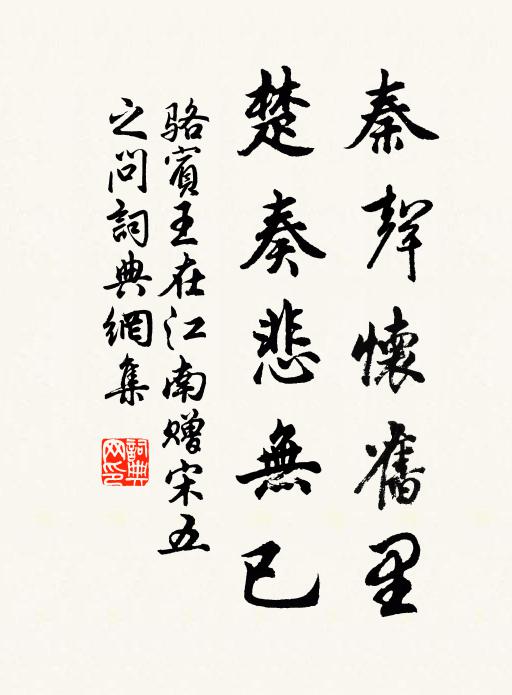 秦聲懷舊里
楚奏悲無已
駱賓王在江南贈宋五
之問詞典網集
詞典網印